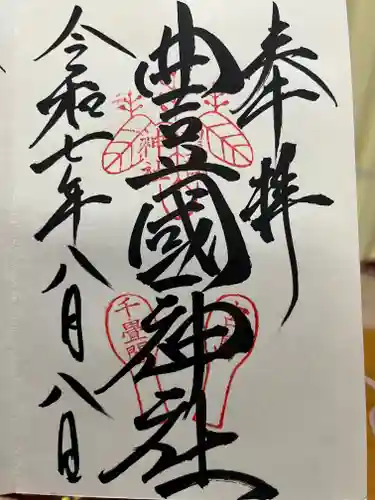 奉拝
豊國神社
令和七年八月八日
千畳閣